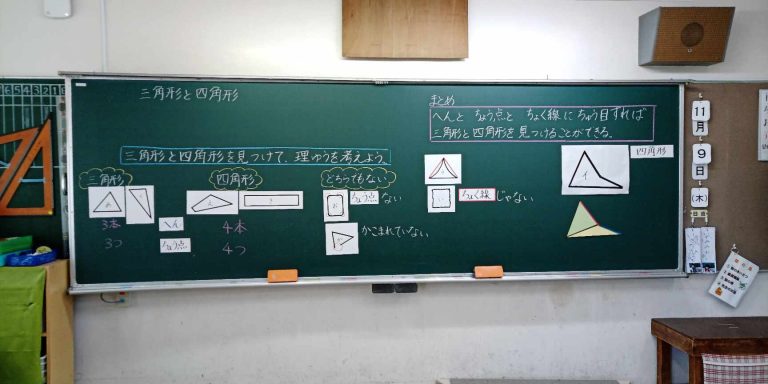 三角形と四角形
三角形と四角形を見つけて、理ゆうを考えよう。
三角形
四角形
どちらでもない
3本
へん
4本
3つ
ちょう点
4つ
ちょう点
ない
かこまれていない
まとめ
へんと ちょう点と ちょく線に ちゅう目すれば
三角形と四角形を見つけることができる。
ちょく線
じゃない
四角形
イ
11
月
9
日
(木)